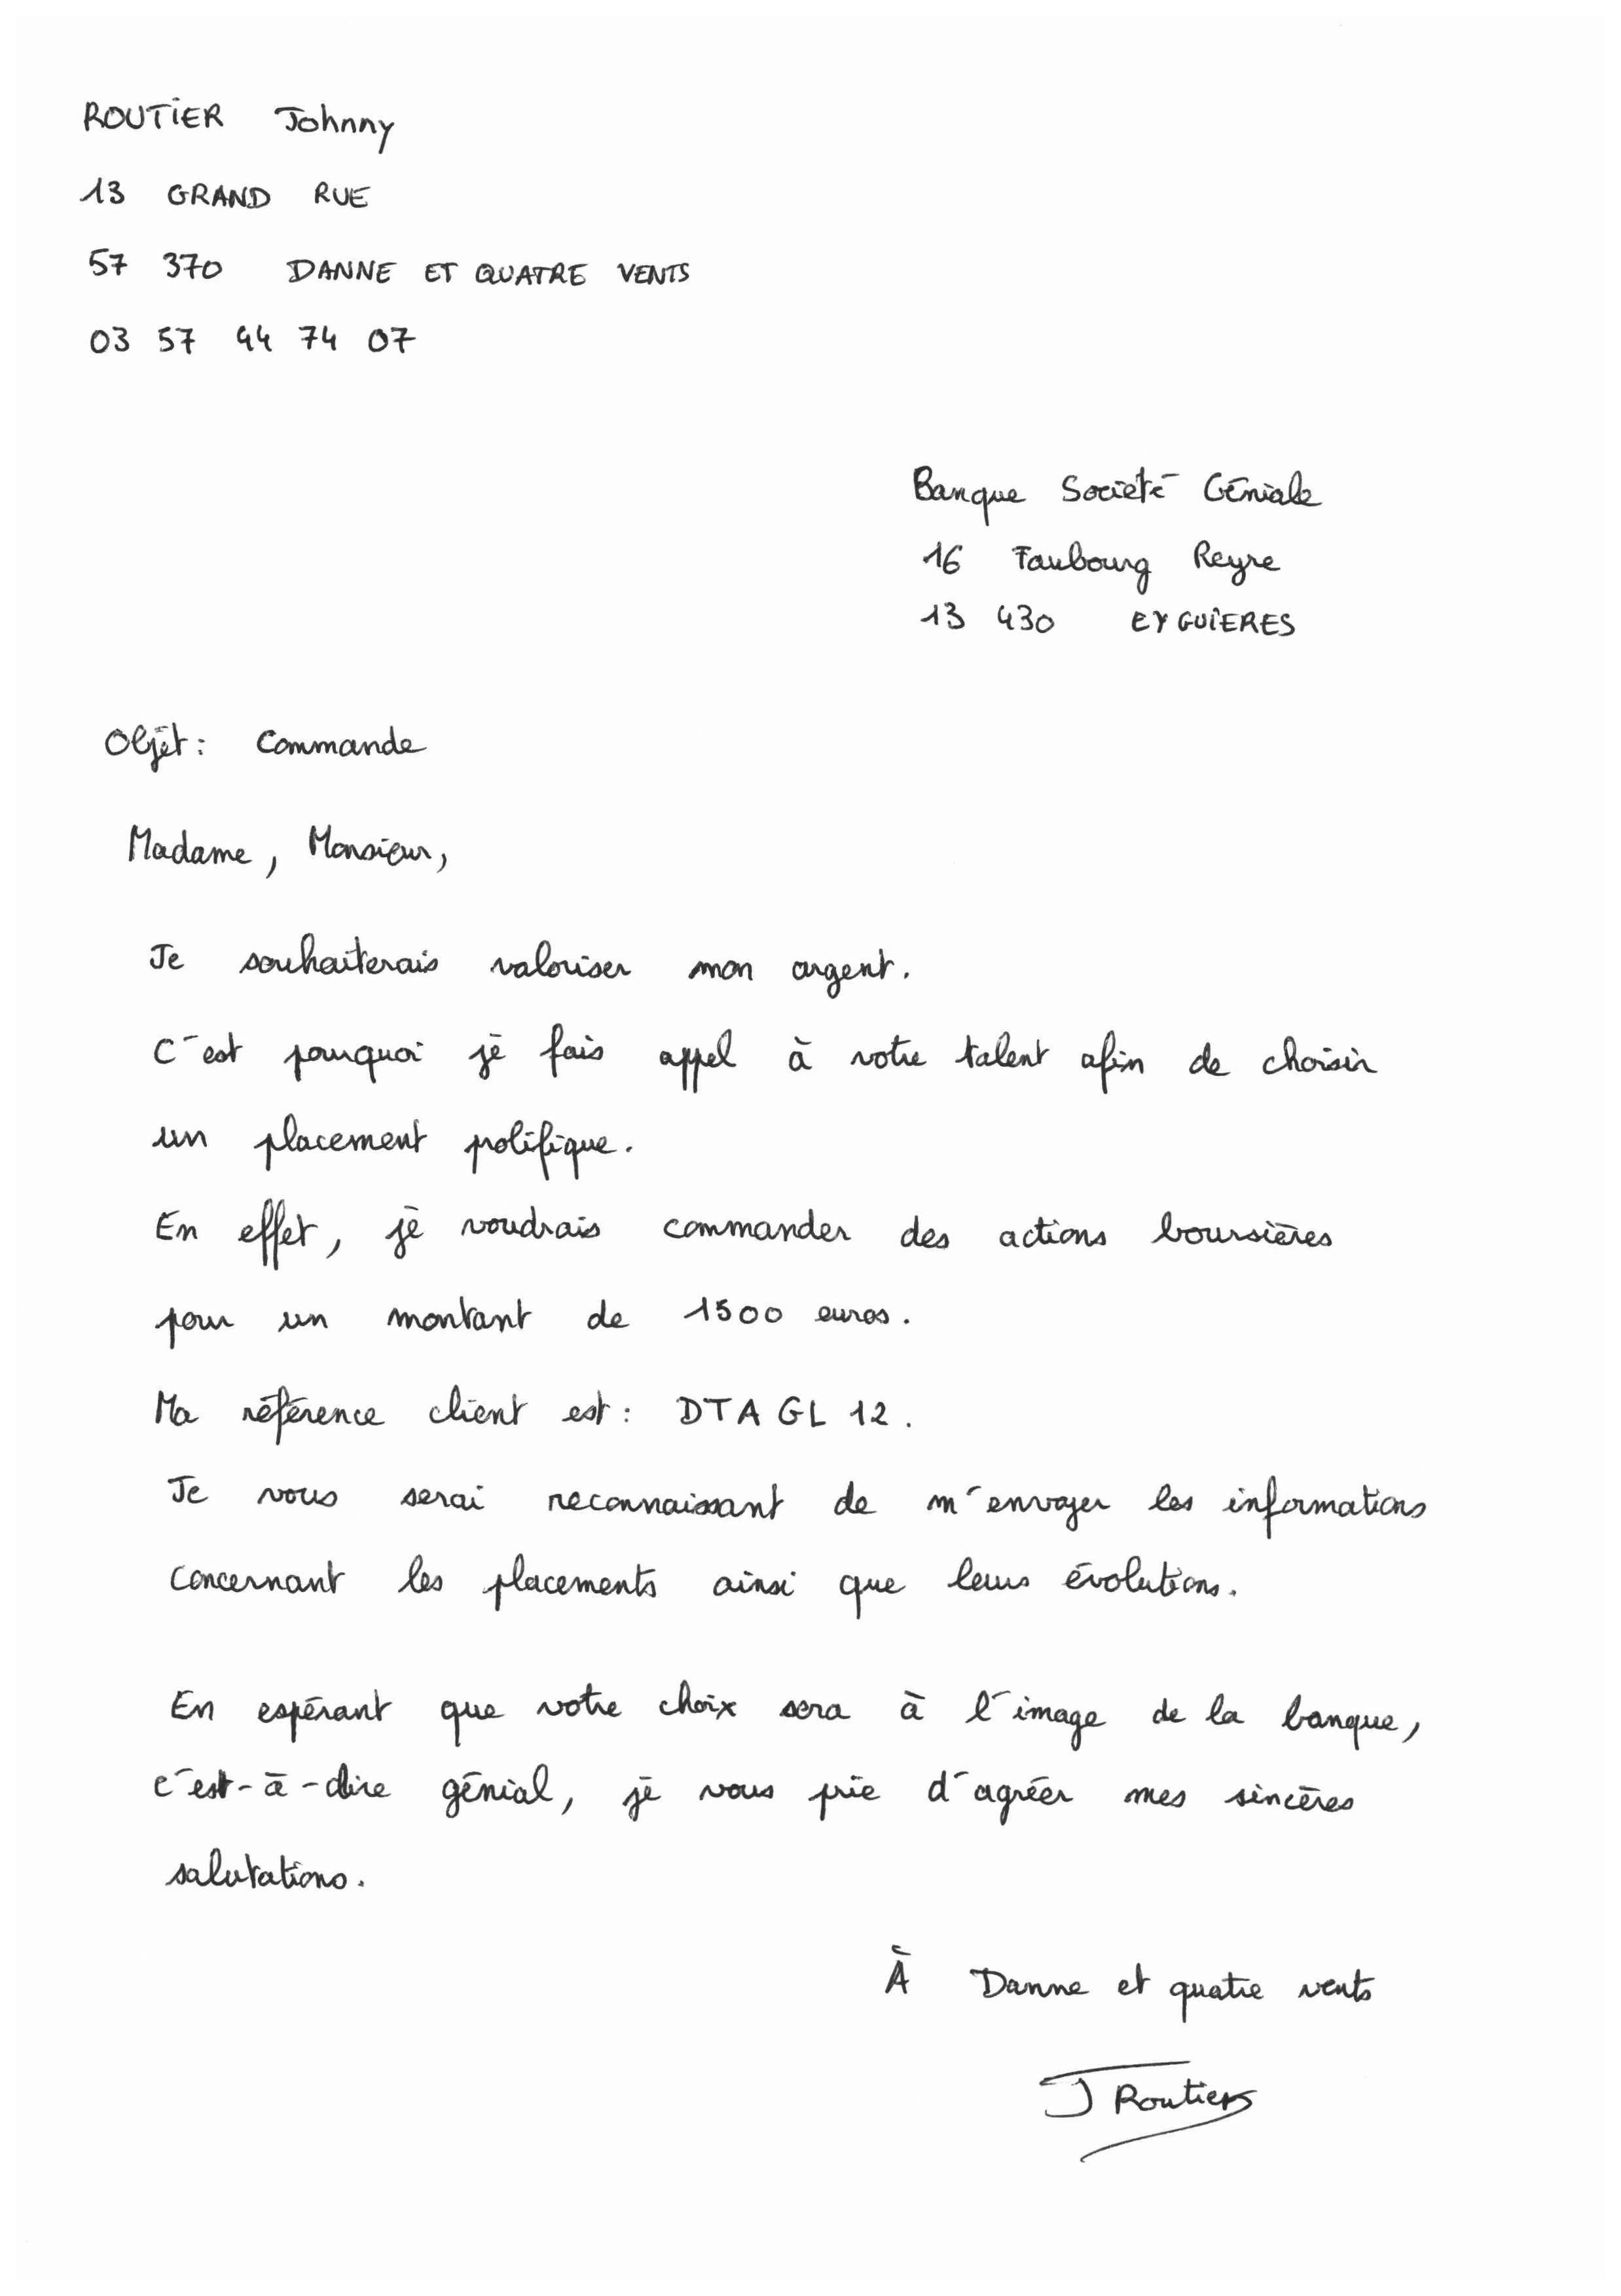 ROUTIER Johnny
13 GRAND RUE
57 370 DANNE ET QUATRE VENTS
03 57 44 74 07
Banque Société Géniale
16 Faubourg Reyre
13 430 EYGUIERES
Objet : Commande
Madame, Monsieur,
Je souhaiterais valoriser mon argent.
C'est pourquoi je fais appel à votre talent afin de choisir
un placement prolifique.
En effet, je voudrais commander des actions boursières
pour un montant de 1500 euros.
Ma référence client est : DTAGL12.
Je vous serai reconnaissant de m'envoyer les informations
concernant les placements ainsi que leurs évolutions.
En espérant que votre choix sera à l'image de la banque,
c'est-à-dire génial, je vous prie d'agréer mes sincères
salutations.
À Danne et quatre vents
J Routier